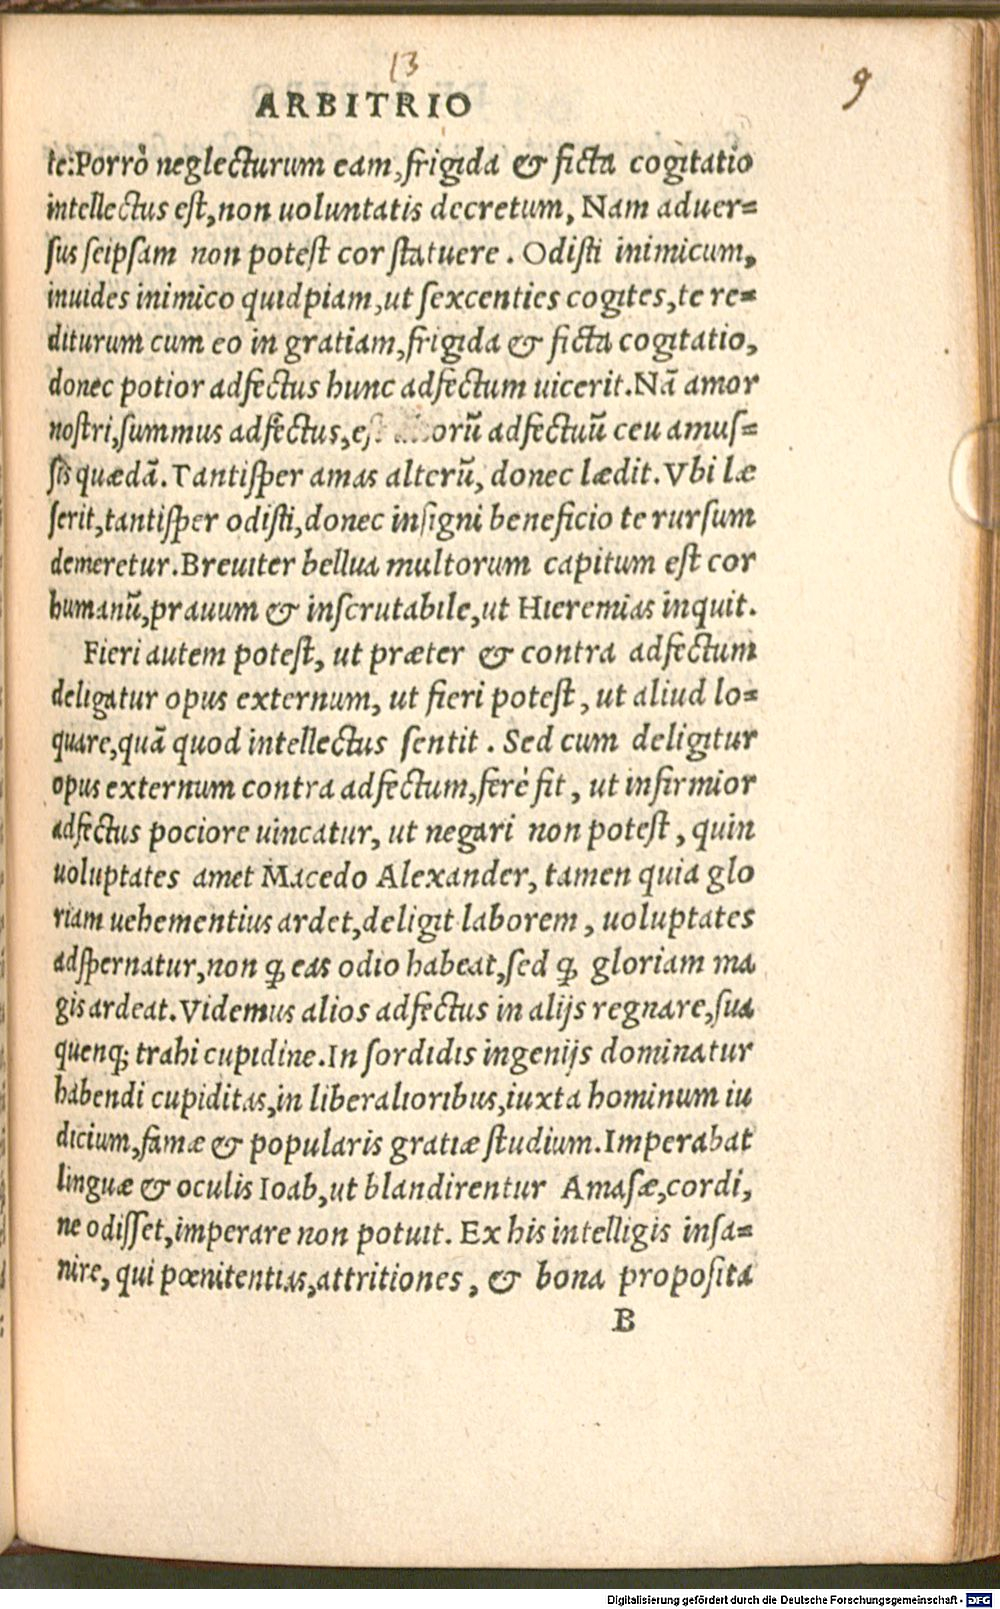 13
9
ARBITRIO
te:Porrò neglecturum eam,frigida & ficta cogitatio
intellectus est,non uoluntatis decretum, Nam aduer=
sus seipsam non potest cor statuere. Odisti inimicum,
inuides inimico quidpiam,ut sexcenties cogites,te re=
diturum cum eo in gratiam,frigida & ficta cogitatio,
donec potior adfectus hunc adfectum uicerit.Nã amor
nostri,summus adfectus, adfectuũ ceu amus=
sis quædã.Tantisper amas alterũ, donec lædit.Vbi læ
serit,tantisper odisti,donec insigni beneficio te rursum
demeretur.Breuiter bellua multorum capitum est cor
humanũ,prauum & inscrutabile,ut Hieremias inquit.
Fieri autem potest, ut præter & contra adfectum
deligatur opus externum, ut fieri potest, ut aliud lo=
quare,quã quod intellectus sentit. Sed cum deligitur
opus externum contra adfectum,ferè fit, ut infirmior
adfectus pociore uincatur, ut negari non potest, quin
uoluptates amet Macedo Alexander, tamen quia glo
riam uehementius ardet,deligit laborem, uoluptates
adspernatur,non ꝙ eas odio habeat,sed ꝙ gloriam ma
gis ardeat.Videmus alios adfectus in alijs regnare,sua
quenq; trahi cupidine.In sordidis ingenijs dominatur
habendi cupiditas,in liberalioribus,iuxta hominum iu
dicium,famæ & popularis gratiæ studium.Imperabat
linguæ & oculis Ioab,ut blandirentur Amasæ,cordi,
ne odisset,imperare non potuit. Ex his intelligis insa=
nire, qui pœnitentias,attritiones, & bona proposita
B
Digitalisierung gefördert durch die Deutsche Forschungsgemeinschaft - DFG